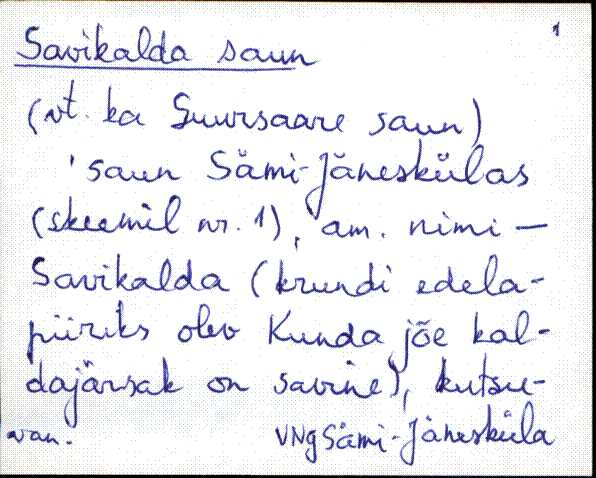 1
Savikalda saun
(vt. ka Suursaare saun)
'saun Sämi-Jäneskülas
(skeemil nr. 1), am. nimi —
Savikalda (krundi edela-
piiriks olev Kunda jõe kal-
dajärsak on savine), kutsu-
van.
VNg Sämi-Jänesküla